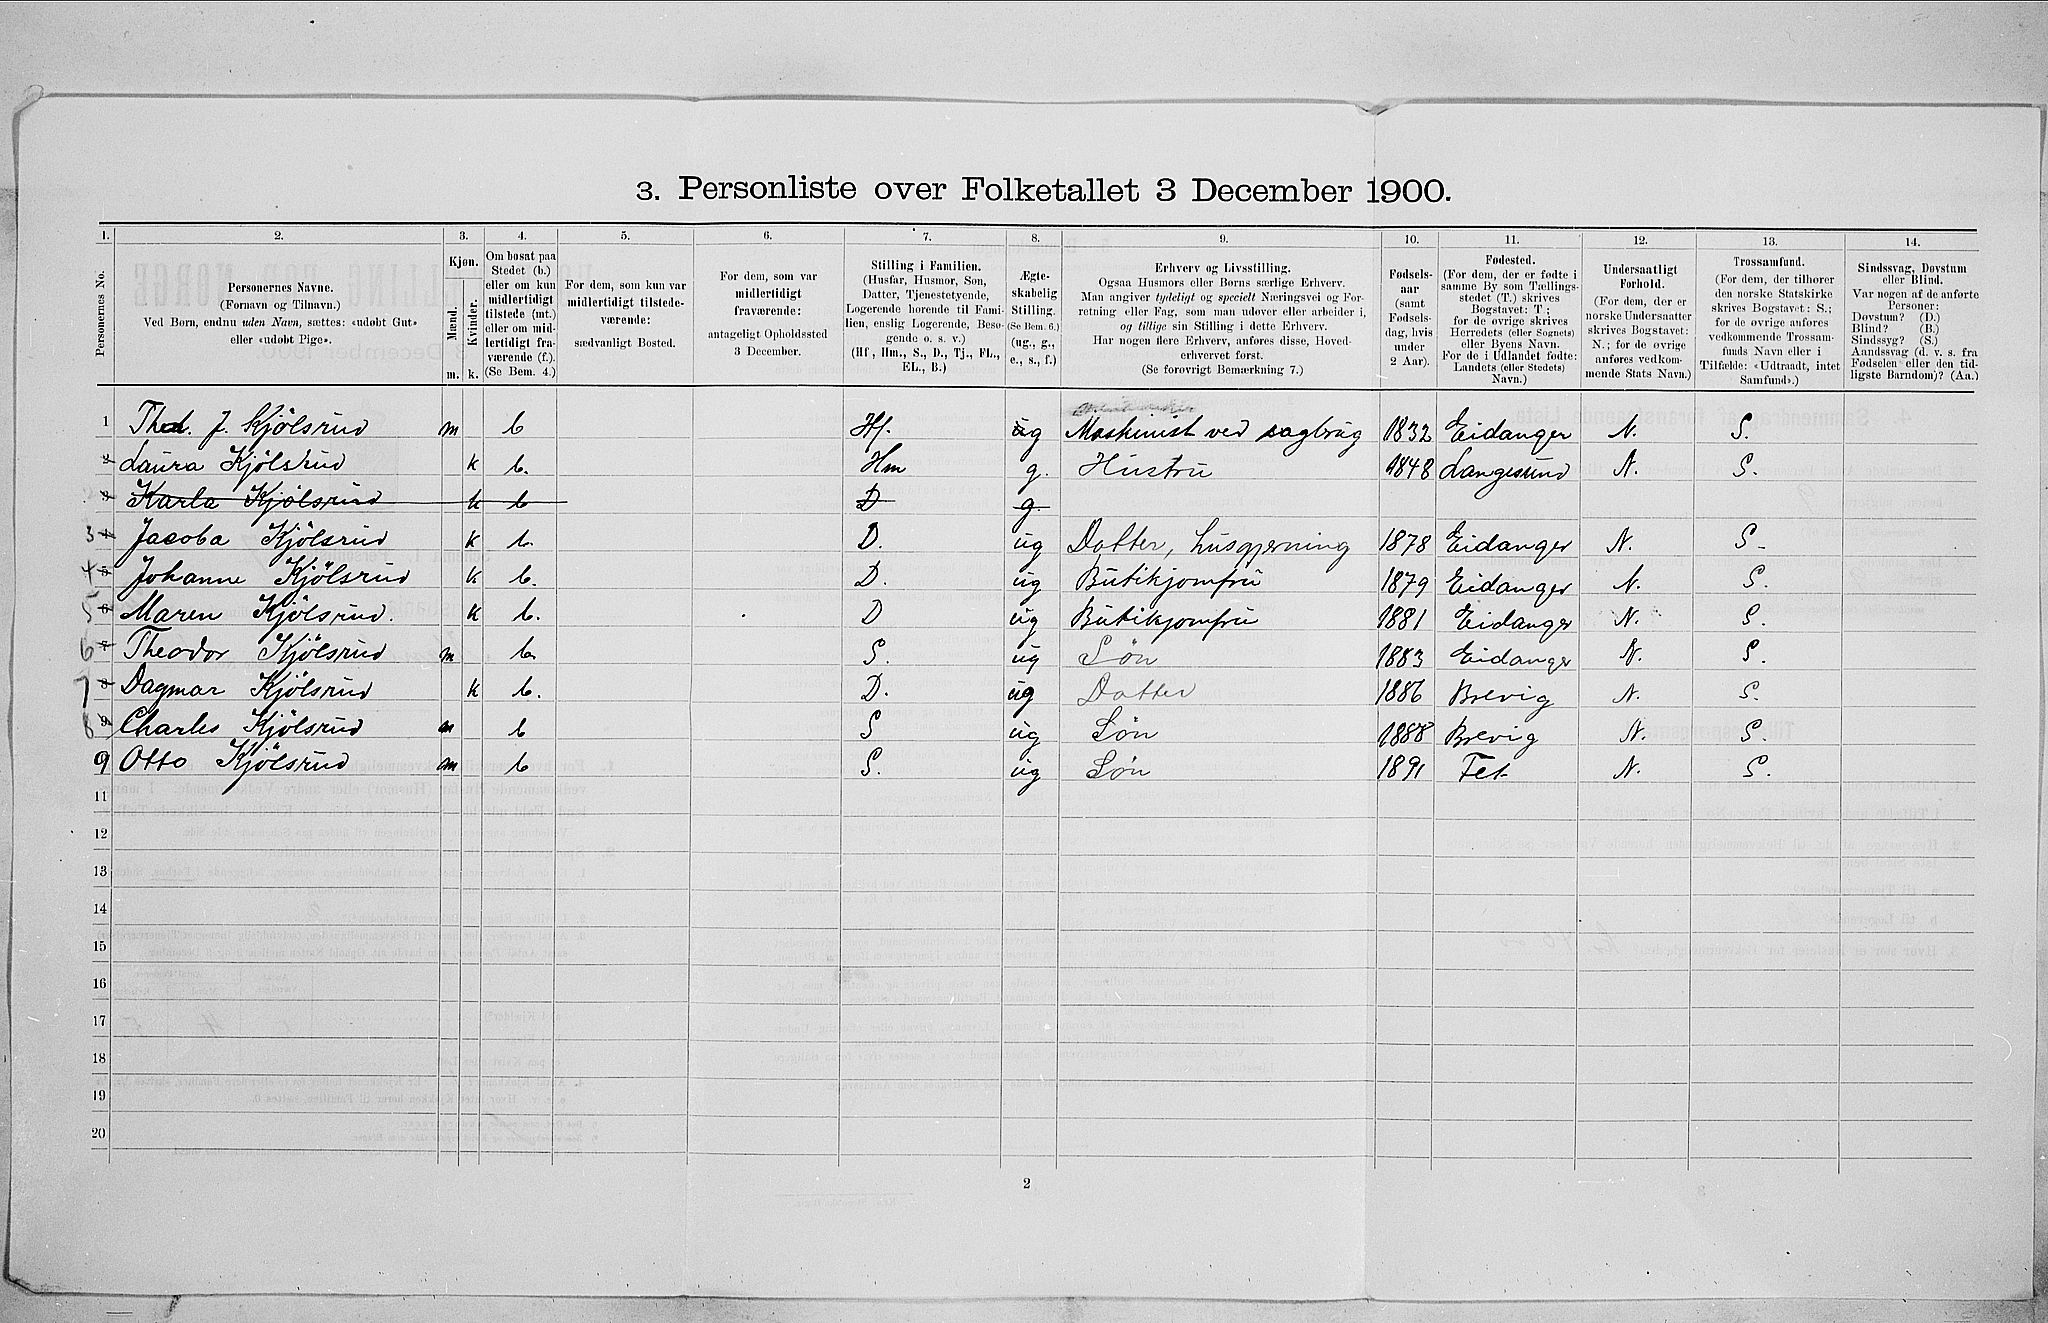 3. Personliste over Folketallet 3 December 1900.
1. 2. 3. 4. 5. 6. 7. 8. 9. 10. 11. 12. 13. 14.
Personernes No.
Personernes Navne.
(Fornavn og Tilnavn.)
Ved Børn, endnu uden Navn, sættes: «udøbt Gut»
eller «udøbt Pige».
Kjøn.
Mænd.
Kvinder.
m. k.
Om bosat paa
Stedet (b.)
eller om kun
midlertidigt
tilstede (mt.)
eller om mid-
lertidigt fra-
værende (f.).
(Se Bem. 4.)
For dem, som kun var
midlertidigt tilstede-
værende:
sædvanligt Bosted.
For dem, som var
midlertidigt
fraværende:
antageligt Opholdssted
3 December.
Stilling i Familien.
(Husfar, Husmor, Søn,
Datter, Tjenestetyende,
Logerende hørende til Fami-
lien, enslig Logerende, Besø-
gende o. s. v.)
(Hf., Hm., S., D., Tj., FL.,
EL., B.)
Ægte-
skabelig
Stilling.
(Se Bem. 6.)
(ug., g.,
e., s., f.)
Erhverv og Livsstilling.
Ogsaa Husmors eller Børns særlige Erhverv.
Man angiver tydeligt og specielt Næringsvei og For-
retning eller Fag, som man udøver eller arbeider i,
og tillige sin Stilling i dette Erhverv.
Har nogen flere Erhverv, anføres disse, Hoved-
erhvervet først.
(Se forøvrigt Bemærkning 7.)
Fødsels-
aar
(samt
Fødsels-
dag, hvis
under
2 Aar).
Fødested.
(For dem, der er fødte i
samme By som Tællings-
stedet (T.) skrives
Bogstavet: T.;
for de øvrige skrives
Herredets (eller Sognets)
eller Byens Navn.
For de i Udlandet fødte:
Landets (eller Stedets)
Navn.)
Undersaatligt
Forhold.
(For dem, der er
norske Undersaatter
skrives Bogstavet:
N.; for de øvrige
anføres vedkom-
mende Stats Navn.)
Trossamfund.
(For dem, der tilhører
den norske Statskirke
skrives Bogstavet: S.;
for de øvrige anføres
vedkommende Trossam-
funds Navn eller i
Tilfælde: «Udtraadt, intet
Samfund».)
Sindssvag, Døvstum
eller Blind.
Var nogen af de anførte
Personer:
Døvstum? (D.)
Blind? (B.)
Sindssyg? (S.)
Aandssvag (d. v. s. fra
Fødselen eller den tid-
ligste Barndom)? (Aa.)
1 Thd. J. Kjölsrud m b Hf. g Maskinist ved sagbrug 1832 Eidanger N. S.
2 Laura Kjölsrud k b. Hm g. Hustru 1848 Langesund N. S.
3 Karla Kjölsrud k b D g.
3 4 Jacoba Kjölsrud k b. D. ug Datter, husgjerning 1878 Eidanger N. S.
4 5 Johanne Kjölsrud k b. D. ug Butikjomfru 1879 Eidanger N. S.
5 6 Maren Kjölsrud. k b. D ug Butikjomfru 1881 Eidanger N. S.
6 7 Theodor Kjölsrud m b. S. ug Sön 1883 Eidanger N. S.
7 8 Dagmar Kjölsrud k b. D. ug Datter 1886 Brevig N. S.
8 9 Charles Kjölsrud m b S ug Sön 1888 Brevig N. S.
9 Otto Kjölsrud m b S. ug Sön 1891 Fet N. S.
11
12
13
14
15
16
17
18
19
20
2